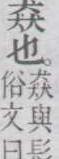 猋也。
猋與髟
俗文曰